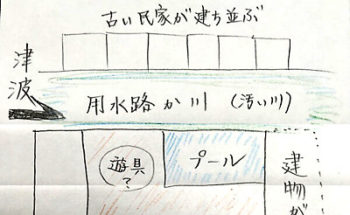 古い民家が建ち並ぶ
津波
用水路か川 (汚い川)
遊具
?
プール
建物が